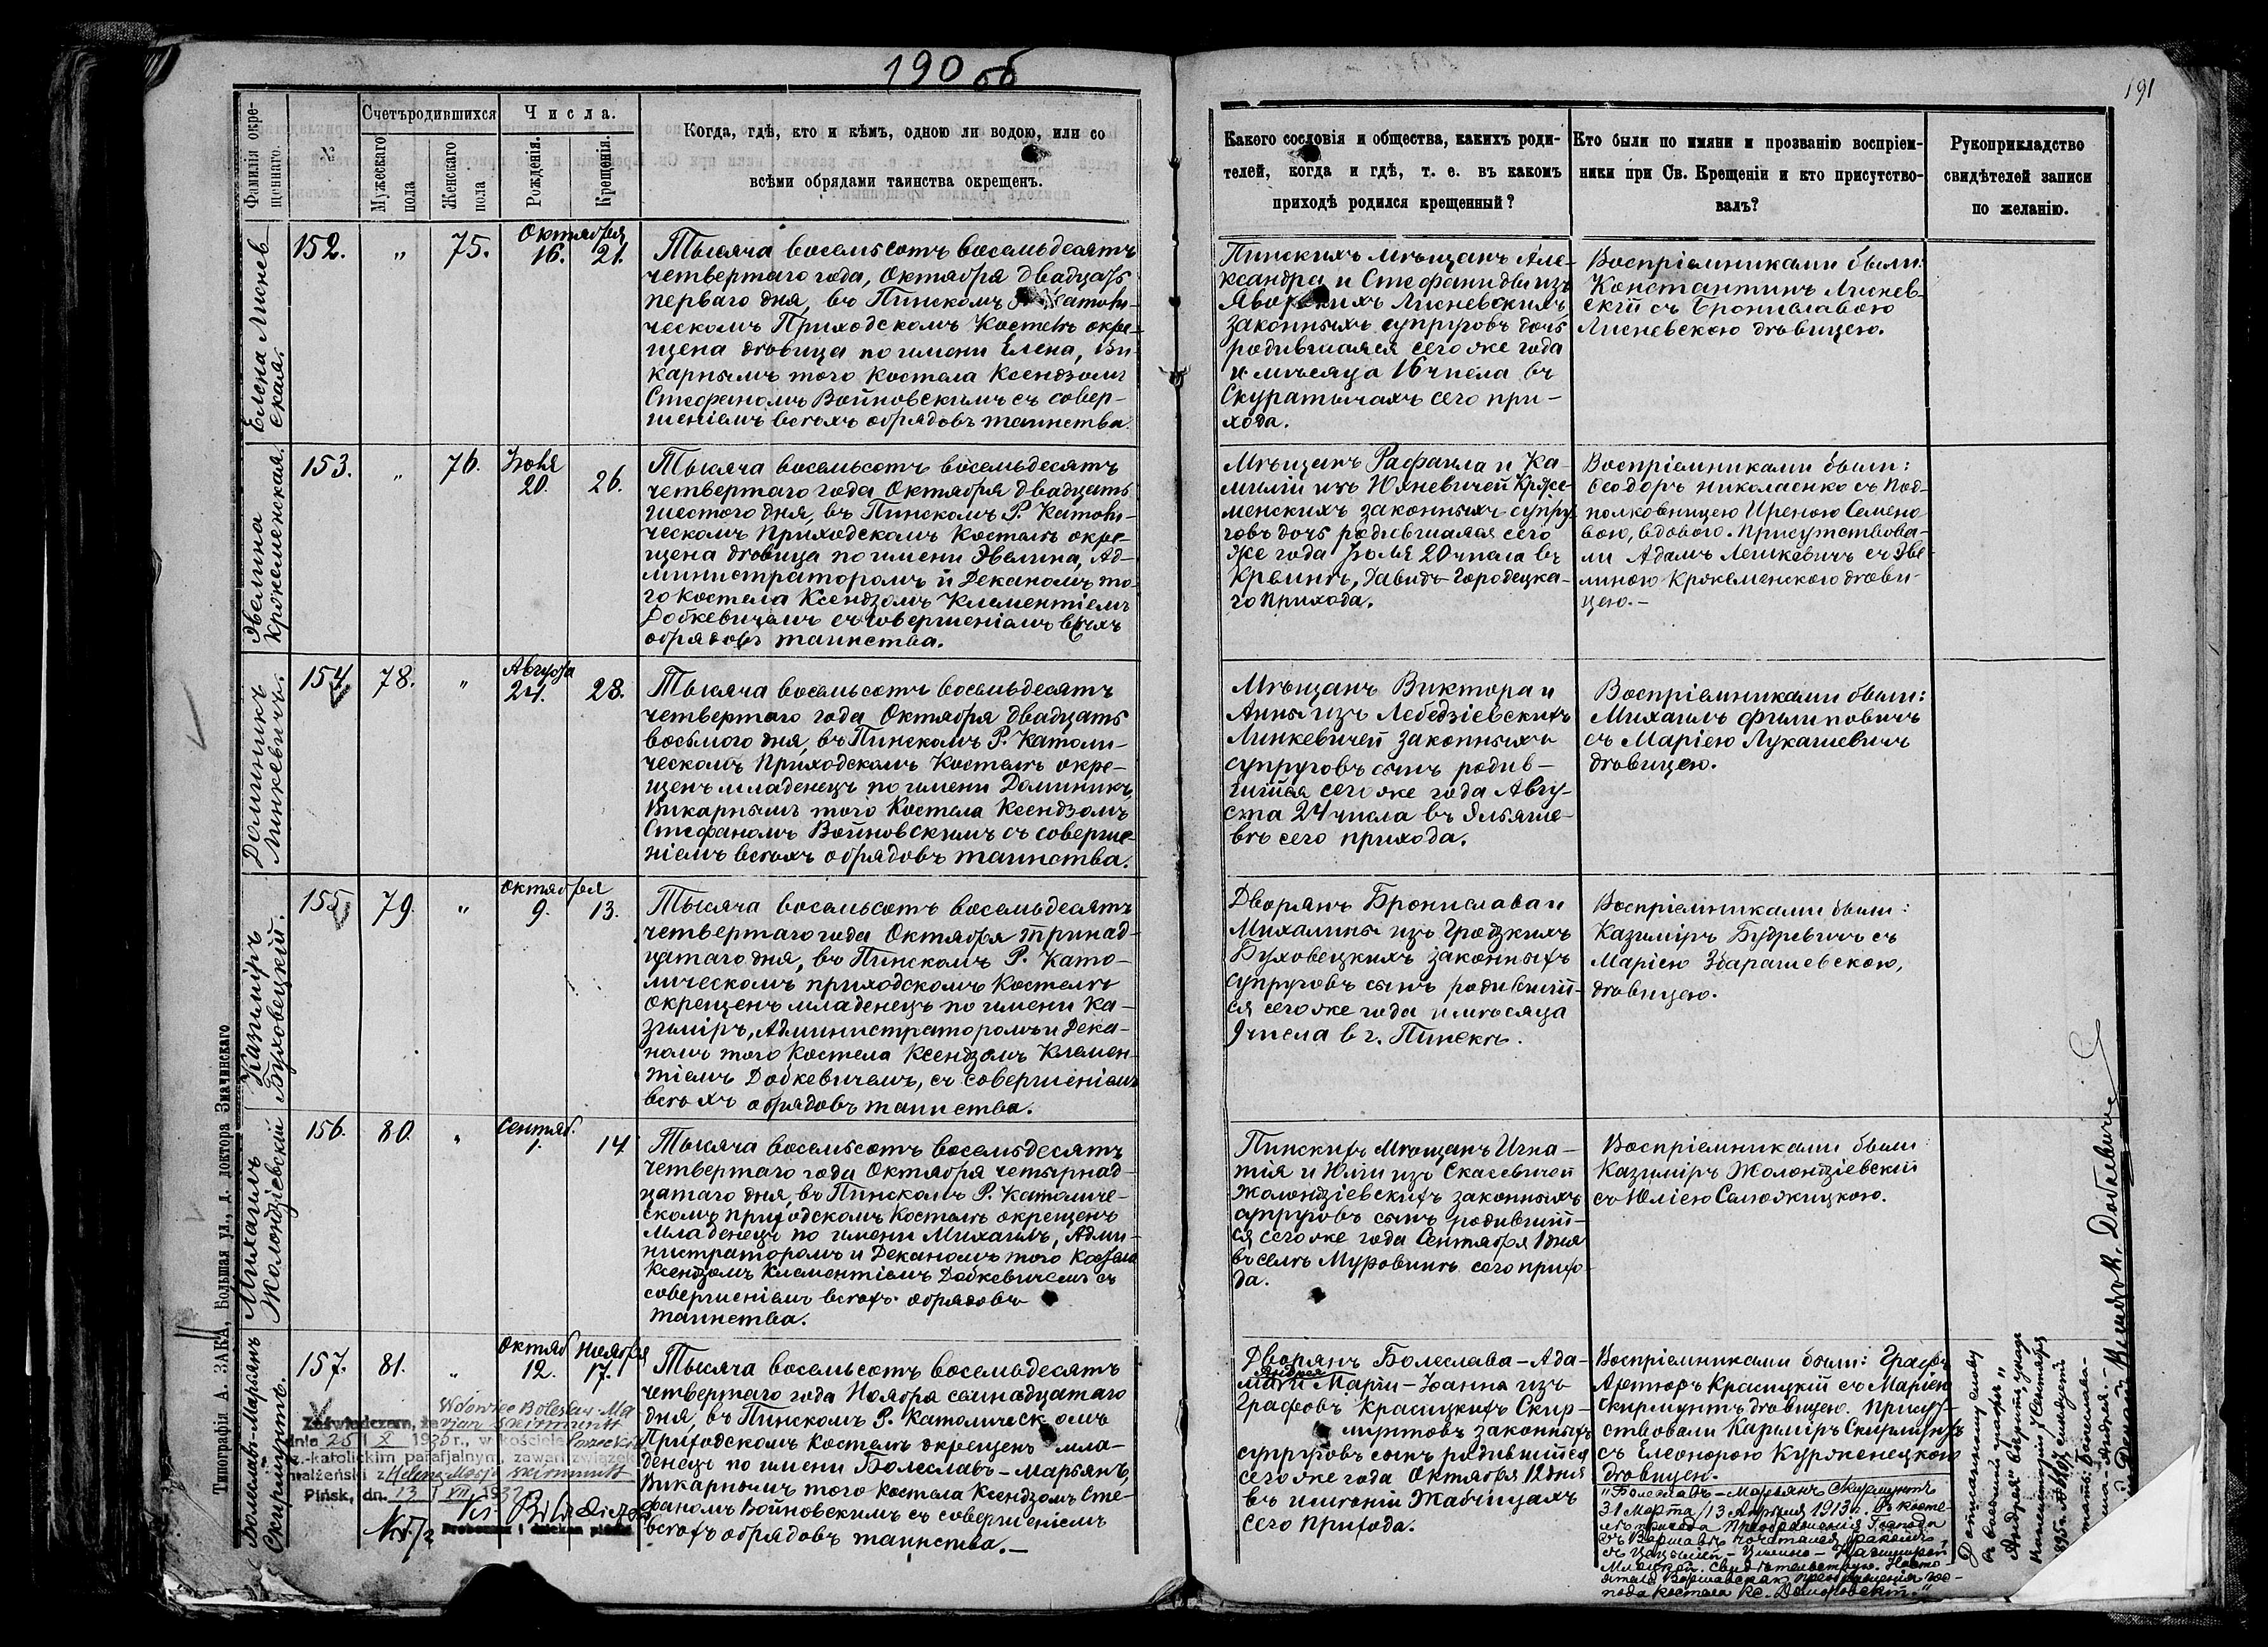 190 об
191
Фамилія окре-
щеннаго.
№
Счетъ родившихся
Мужескаго
пола
Женскаго
пола
Числа.
Рожденія.
Крещенія.
Когда, гдѣ, кто и кѣмъ, одною ли водою, или со
всѣми обрядами таинства окрещенъ.
Какого сословія и общества, какихъ роди-
телей, когда и гдѣ, т. е. въ какомъ
приходѣ родился крещенный?
Кто были по имяни и прозванію воспріем-
ники при Св. Крещеніи и кто присутство-
валъ?
Рукоприкладство
свидѣтелей записи
по желанію.
Елена Лиснев-
ская.
152.
"
75.
Октября
16. 21.
Тысяча восемьсотъ восемьдесятъ
четвертаго года, Октября двадцать
перваго дня, въ Пинскомъ Р. Католи-
ческомъ Приходскомъ Костелѣ окре-
щена дѣвица по имени Елена, Ви-
карнымъ того Костела Ксендзомъ
Стефаномъ Войновскимъ съ совер-
шеніемъ всѣхъ обрядовъ таинства.
Пинскихъ Мѣщанъ Але-
ксандра и Стефаниды изъ
Яворскихъ Лисневскихъ,
законныхъ супруговъ дочь
родившаяся сего же года
и мѣсяца 16 числа въ
Скуратычахъ сего при-
хода.
Воспріемниками были:
Константинъ Лиснев-
скій съ Брониславою
Лисневскою дѣвицею.
Эвелина
Кржеменская.
153.
"
76.
Іюля
20. 26.
Тысяча восемьсотъ восемьдесятъ
четвертаго года Октября двадцать
шестого дня, въ Пинскомъ Р. Католи-
ческомъ Приходскомъ Костелѣ окре-
щена дѣвица по имени Эвелина, Ад-
министраторомъ и Деканомъ то-
го Костела Ксендзомъ Клементіемъ
Добкевичемъ съ совершеніемъ всѣхъ
обрядовъ таинства.
Мѣщанъ Рафаила и Ка-
миліи изъ Юхневичей Крже-
менскихъ законныхъ супру-
говъ дочь родившаяся сего
же года Іюля 20 числа въ
Давидъ-Городецка-
го Прихода.
Воспріемниками были:
Ѳеодоръ Николаенко съ Под-
полковницею Иреною Семено-
вою, вдовою. Присутствова-
ли Адамъ Лешкевичъ съ Эве-
линою Кржеменскою дѣви-
цею.-
Доминикъ
Линкевичъ.
154.
78.
"
Августа
24. 28.
Тысяча восемьсотъ восемьдесятъ
четвертаго года Октября двадцать
восьмого дня, въ Пинскомъ Р. Католи-
ческомъ Приходскомъ Костелѣ окре-
щенъ младенецъ по имени Доминикъ,
Викарнымъ того Костела Ксендзомъ
Стефаномъ Войновскимъ съ соверше-
ніемъ всѣхъ обрядовъ таинства.
Мѣщанъ Виктора и
Анны изъ Лебедзіевскихъ
Линкевичей законныхъ
супруговъ сынъ родив-
шійся сего же года Авгу-
ста 24 числа въ
сего прихода.
Воспріемниками были:
Михаилъ Филиповичъ
съ Маріею Лукашевичъ
дѣвицею.
Казиміръ
Буховецкій.
155.
79.
"
Октября
9. 13.
Тысяча восемьсотъ восемьдесятъ
четвертаго года Октября тринад-
цатаго дня, въ Пинскомъ Р. Като-
лическомъ приходскомъ Костелѣ
окрещенъ младенецъ по имени Ка-
зиміръ, Администраторомъ и Дека-
номъ того Костела Ксендзомъ Клемен-
тіемъ Добкевичемъ, съ совершеніемъ
всѣхъ обрядовъ таинства.
Дворянъ Бронислава и
Михалины изъ Гродзкихъ
Буховецкихъ законныхъ
супруговъ сынъ родившій-
ся сего же года и мѣсяца
9 числа въ г. Пинскѣ.
Воспріемниками были:
Казиміръ Будревичъ съ
Маріею Збарашевскою,
дѣвицею.
Михаилъ
Жолондзіевскій
156.
80.
"
Сентяб.
1. 14
Тысяча восемьсотъ восемьдесятъ
четвертаго года Октября четырнад-
цатаго дня, въ Пинскомъ Р. Католиче-
скомъ приходскомъ Костелѣ окрещенъ
Младенецъ по имени Михаилъ, Адми-
нистраторомъ и Деканомъ того Костела
Ксендзомъ Клементіемъ Добкевичемъ съ
совершеніемъ всѣхъ обрядовъ
таинства.
Пинскихъ Мѣщанъ Игна-
тія и Юліи изъ Скасевичей
Жолондзіевскихъ законныхъ
супруговъ сынъ родившій-
ся сего же года Сентября 1 дня
въ селѣ Муровинѣ сего прихо-
да.
Воспріемниками были
Казиміръ Жолондзіевскій
съ Юліею Саможицкою.
Болеславъ-Марьянъ
Скирмунтъ.
157.
81.
"
Октяб. Ноября
12. 17.
Тысяча восемьсотъ восемьдесятъ
четвертаго года Ноября семнадцатаго
дня, въ Пинскомъ Р. Католическомъ
Приходскомъ Костелѣ окрещенъ мла-
денецъ по имени Болеславъ-Марьянъ,
Викарнымъ того Костела Ксендзомъ Сте-
фаномъ Войновскимъ съ совершеніемъ
всѣхъ обрядовъ таинства.-
Wdowiec Bolesław-Ma
Zaświadczam, że rjan Skirmuntt
dnia 25 X 1936 r., w kościele
rz.-katolickim parafjalnym, zawarł związek
małżeński z Heleną Marją Skirmuntt
Pińsk, dn. 13 VII 1937
Ks.
Proboszcz i dziekan piński
Дворянъ Болеслава-Ада-
ма
Андрея
и Маріи-Іоанны изъ
Графовъ Красицкихъ Скир-
мунтовъ законныхъ
супруговъ сынъ родившійся
сего же года Октября 12 дня
въ имѣніи Жабчицахъ
сего прихода.
Воспріемниками были: Графъ
Артюръ Красицкій съ Маріею
Скирмунтъ дѣвицею. Присут-
ствовали Казиміръ Скирмунтъ
съ Елеонорою Курженецкою
дѣвицею.
"Болеславъ-Марьянъ Скирмунтъ
31 Марта/13 Апрѣля 1913 г. въ косте-
лѣ прихода Преображенія Господа
въ Варшавѣ
пода костела Кс.
Дописанному слову
Андрея"
Типографія А. ЗАКА, Большая ул., д. доктора Значинскаго